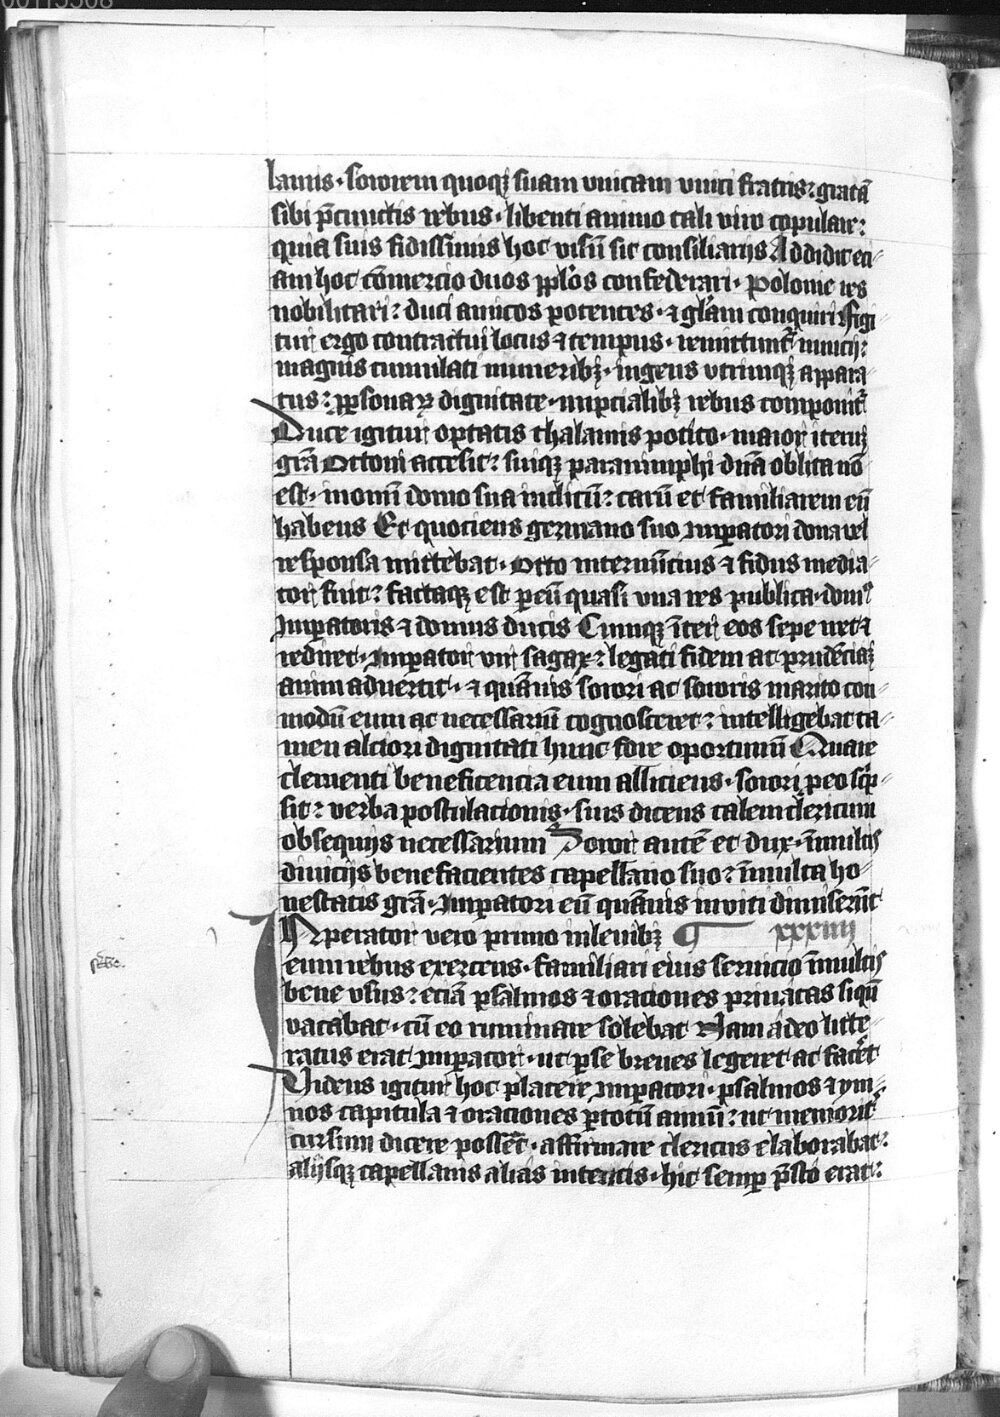 lanus · sororem quoqꝫ suam vnicam vnici fratris: gratā
sibi p̄cunctis rebus · libenti animo tali viro copulare:
quia suis fidissimis hoc visū sit consiliarijs Addidit eci-
am hoc cōmercio duos pp̄los confederari · Polonie res
nobilitari: duci amicos potentes · ⁊ gl̄am conquiri Figi
tur ergo contractui locus ⁊ tempus · remittunt᷑ nuncij:
magnis cumulati muneribꝫ · ingens vtrimqꝫ appara
tus: ꝑsonaꝝ dignitate · imꝑcialibꝫ rebus componit᷑
Duce igitur optatis thalamis potito · maior iterū
gr̄a Ottoni accesit: suiqꝫ paranimphi dn̄a oblita nō
est · in omī domo sua inclitū: carū et familiarem eū
habens Et quociens germano suo Imꝑatori dona vel
responsa mittebat · Otto internūcius ⁊ fidus media-
tor fuit: factaqꝫ est ꝑ eū quasi vna res publica · dom9
Imꝑatoris ⁊ domus ducis Cumqꝫ īter eos sepe iret ⁊
rediret · Imꝑator vir sagax: legati fidem ac prudēciaꝫ
animaduertit · ⁊ quāuis sorori ac sororis marito con-
modū eum ac necessariū cognosceret: intelligebat ta-
men alciori dignitati hunc fore oportunū Quare
clementi beneficencia eum alliciens · sorori ꝓ eo scp̄-
sit: verba postulationis · suis dicens talem clericum
obsequijs necessarium Soror autē et dux · ī multis
diuicijs benefacientes capellano suo: ī multa ho-
nestatis gr̄a · Imꝑatori eū quāuis inviti dimiserūt
Imperator vero primo in leuibꝫ ¶ xxxiiii
eum rebus exercens · familiari eius seruicio ī multis
bene vsus: eciā psalmos ⁊ oraciones priuatas siqn̄
vacabat · cū eo ruminare solebat Nam adeo litte-
ratus erat Imꝑator · ut ꝑ se breues legeret ac facēt
Videns igitur hoc placere Imꝑatori · psalmos ⁊ ym-
nos capitula ⁊ oraciones ꝑ totū annū: ut memorit᷑
cursim dicere possēt · affirmare clericus elaborabat:
alijsqꝫ capellanis alias intentis · hic semꝑ p̄sto erat: